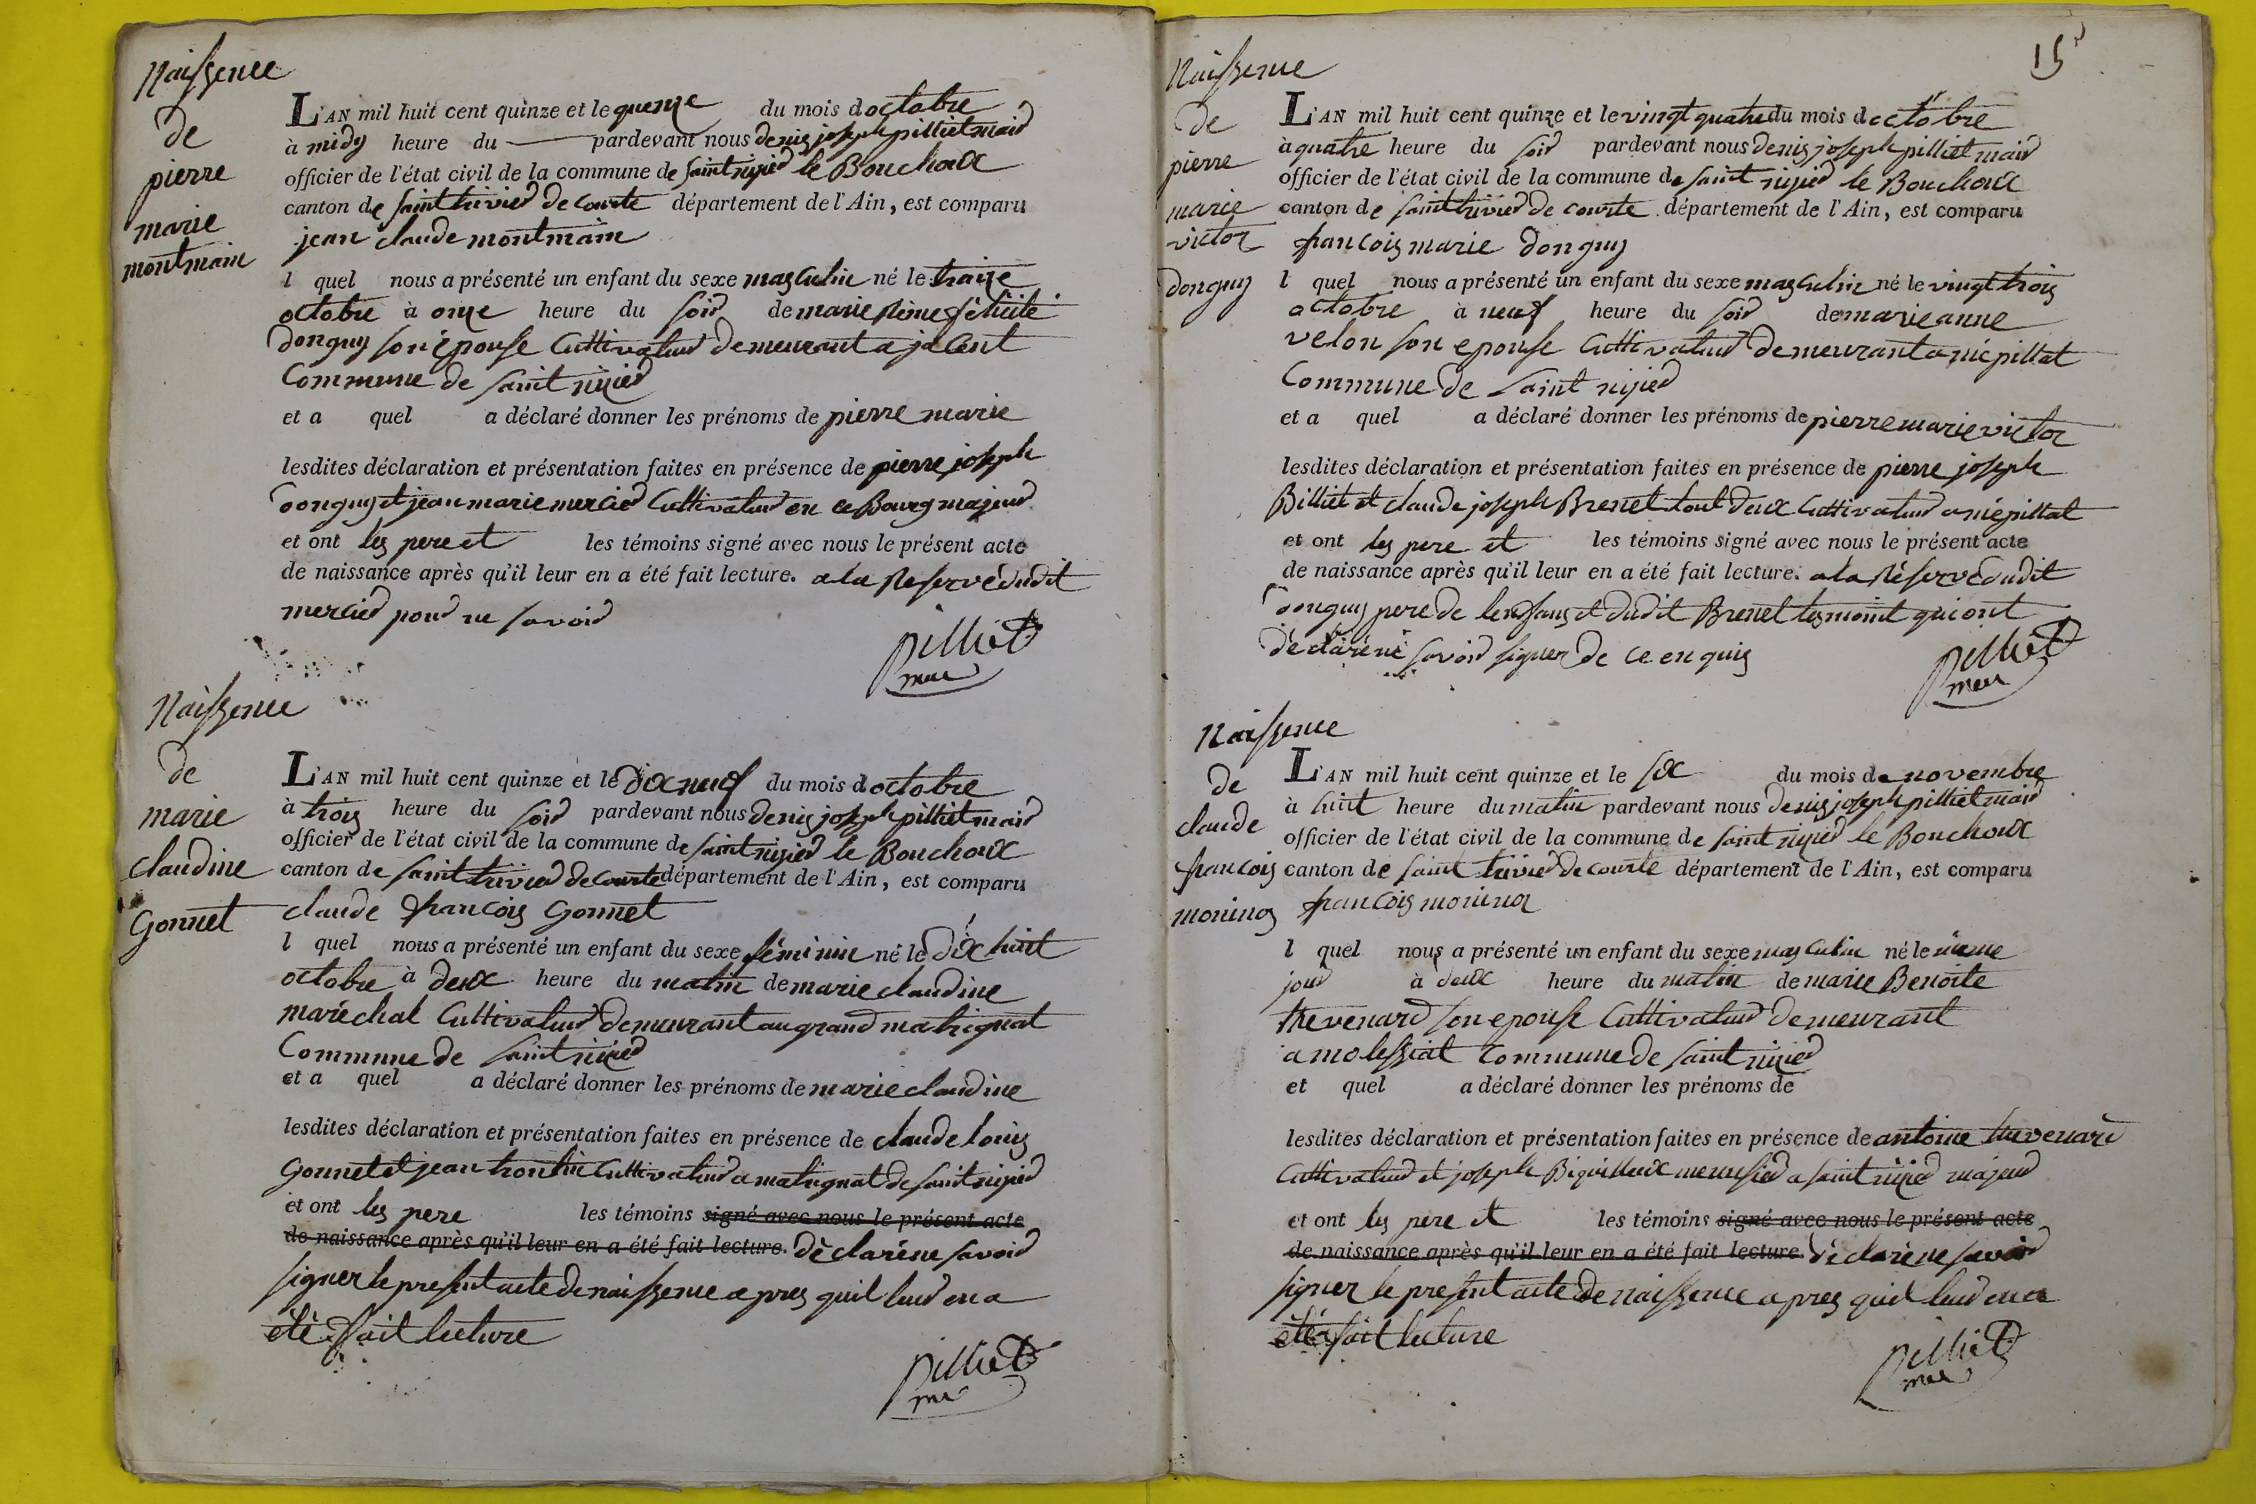 Naissence
de
pierre
marie
montmain
L'AN mil huit cent quinze et le quenze du mois doctobre
à midy heure du pardevant nous denis joseph pilliet maire
officier de l'état civil de la commune de saint nizier le Bouchoux
canton de saint trivier de courte département de l'Ain, est comparu
jean claude montmain
l quel nous a présenté un enfant du sexe masculin né le traize
octobre à onze heure du soir de marie Reine félicité
donguy son épouse Cultivateur demeurant a jacent
Commune de saint nizier
et a quel a déclaré donner les prénoms de pierre marie
lesdites déclaration et présentation faites en présence de pierre joseph
donguy et jean marie mercier Cultivateur en ce Bourg majeur
et ont les pere et les témoins signé avec nous le présent acte
de naissance après qu'il leur en a été fait lecture. a la Reserve dudit
mercier pour ne savoir
pilliet
mre
Naissence
de
marie
claudine
Gonnet
L'AN mil huit cent quinze et le dix neuf du mois doctobre
à trois heure du soir pardevant nous denis joseph pilliet maire
officier de l'état civil de la commune de saint nizier le Bouchoux
canton de saint trivier de courte département de l'Ain, est comparu
claude françois Gonnet
l quel nous a présenté un enfant du sexe féminin né le dix huit
octobre à deux heure du matin de marie claudine
maréchal Cultivateur demeurant au grand matrignat
Commune de saint nizier
et a quel a déclaré donner les prénoms de marie claudine
lesdites déclaration et présentation faites en présence de claude louis
Gonnet et jean trontin Cultivateur a matrignat de saint nizier
et ont les pere les témoins signé avec nous le présent acte
de naissance après qu'il leur en a été fait lecture. déclaré ne savoir
signer le present acte de naissence apres quil leur en a
été fait lecture
pilliet
mre
15
Naissence
de
pierre
marie
victor
donguy
L'AN mil huit cent quinze et le vingt quatre du mois d octobre
à quatre heure du soir pardevant nous denis joseph pilliet maire
officier de l'état civil de la commune de saint nizier le Bouchoux
canton de saint trivier de courte département de l'Ain, est comparu
françois marie donguy
l quel nous a présenté un enfant du sexe masculin né le vingt trois
octobre à neuf heure du soir de marie anne
velon son epouse Cultivateur demeurant a niépillat
Commune de saint nizier
et a quel a déclaré donner les prénoms de pierre marie victor
lesdites déclaration et présentation faites en présence de pierre joseph
Billiet et claude joseph Brenet tout deux Cultivateur a niépillat
et ont les pere et les témoins signé avec nous le présent acte
de naissance après qu'il leur en a été fait lecture. a la Réserve dudit
donguy pere de lenfans et dudit Brenet tesmoint qui ont
déclaré ne savoir signer de ce enquis
pilliet
mre
Naissence
de
claude
françois
moninos
L'AN mil huit cent quinze et le six du mois de novembre
à huit heure du matin pardevant nous denis joseph pilliet maire
officier de l'état civil de la commune de saint nizier le Bouchoux
canton de saint trivier de courte département de l'Ain, est comparu
françois moninos
l quel nous a présenté un enfant du sexe masculin né le meme
jour à deux heure du matin de marie Benoite
thevenard son epouse Cultivateur demeurant
a molessiat commune de saint nizier
et quel a déclaré donner les prénoms de
lesdites déclaration et présentation faites en présence de antoine thevenard
Cultivateur et joseph Biguilleux menusier a saint nizier majeur
et ont les pere et les témoins signé avec nous le présent acte
de naissance après qu'il leur en a été fait lecture. déclaré ne savoir
signer le present acte de naissence apres quil leur en a
été fait lecture
pilliet
mre